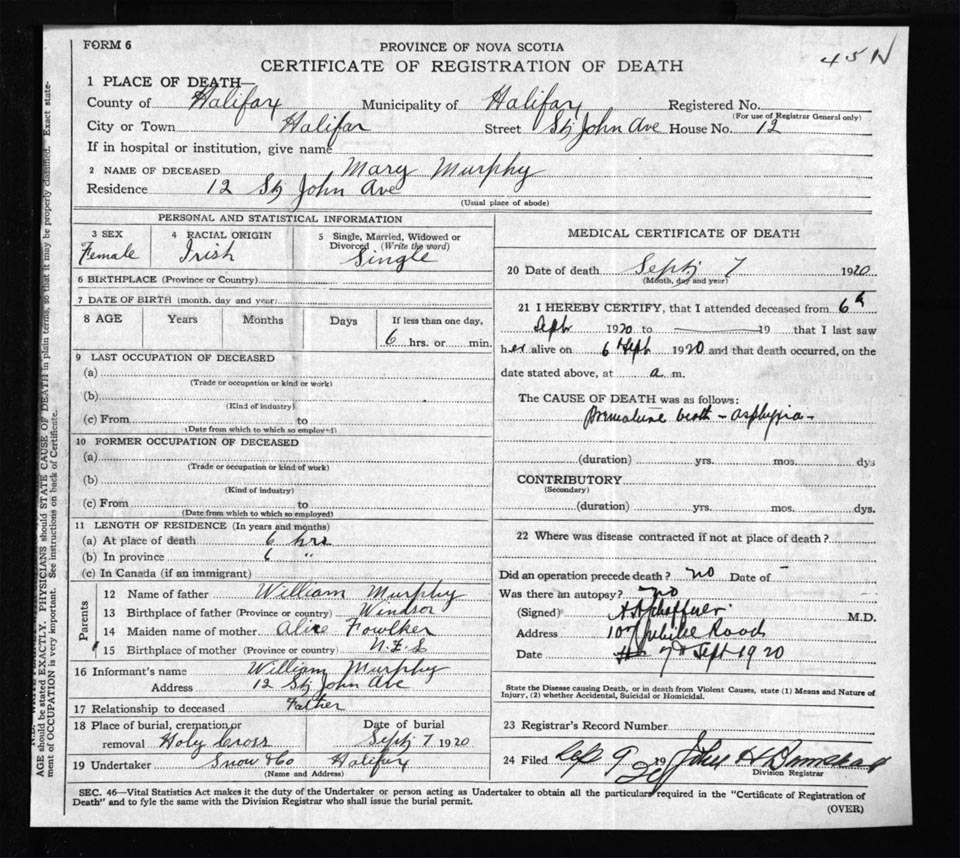 FORM 6
PROVINCE OF NOVA SCOTIA
45 N
CERTIFICATE OF REGISTRATION OF DEATH
1 PLACE OF DEATH—
County of Halifax Municipality of Halifax Registered No.
(For use of Registrar General only)
City or Town Halifax Street St John Ave House No. 12
If in hospital or institution, give name
2 NAME OF DECEASED Mary Murphy
Residence 12 St John Ave
(Usual place of abode)
PERSONAL AND STATISTICAL INFORMATION
3 SEX 4 RACIAL ORIGIN 5 Single, Married, Widowed or
Divorced (Write the word)
Female Irish Single
6 BIRTHPLACE (Province or Country)
7 DATE OF BIRTH (month, day and year)
8 AGE Years Months Days If less than one day,
6 hrs. or min.
9 LAST OCCUPATION OF DECEASED
(a)
(Trade or occupation or kind or work)
(b)
(Kind of industry)
(c) From to
(Date from which to which so employed)
10 FORMER OCCUPATION OF DECEASED
(a)
(Trade or occupation or kind of work)
(b)
(Kind of industry)
(c) From to
(Date from which to which so employed)
11 LENGTH OF RESIDENCE (In years and months)
(a) At place of death 6 hrs
(b) In province 6 "
(c) In Canada (if an immigrant)
Parents
12 Name of father William Murphy
13 Birthplace of father (Province or country) Windsor
14 Maiden name of mother Alice Fowlker
15 Birthplace of mother (Province or country) N.F.L
16 Informant's name William Murphy
Address 12 St John Ave
17 Relationship to deceased Father
18 Place of burial, cremation or Date of burial
removal Holy Cross Sept 7 1920
19 Undertaker Snow & Co Halifax
(Name and Address)
MEDICAL CERTIFICATE OF DEATH
20 Date of death Sept 7 1920
(Month, day and year)
21 I HEREBY CERTIFY, that I attended deceased from 6
Sept 1920 to 19 that I last saw
her alive on 6 Sept 1920 and that death occurred, on the
date stated above, at a m.
The CAUSE OF DEATH was as follows:
Premature birth - asphyxia -
(duration) yrs. mos. dys
CONTRIBUTORY
(Secondary)
(duration) yrs. mos. dys.
22 Where was disease contracted if not at place of death?
Did an operation precede death? no Date of -
Was there an autopsy? no
(Signed) M.D.
Address 107 Jubilee Road
Date 7 Sept 1920
State the Disease causing Death, or in death from Violent Causes, state (1) Means and Nature of
Injury, (2) whether Accidental, Suicidal or Homicidal.
23 Registrar's Record Number
24 Filed Sep 9 1920 John H
Division Registrar
SEC. 46—Vital Statistics Act makes it the duty of the Undertaker or person acting as Undertaker to obtain all the particulars required in the "Certificate of Registration of
Death" and to fyle the same with the Division Registrar who shall issue the burial permit.
(OVER)
AGE should be stated EXACTLY. PHYSICIANS should STATE CAUSE OF DEATH in plain terms, so that it may be properly classified. Exact state-
ment of OCCUPATION is very important. See instructions on back of Certificate.